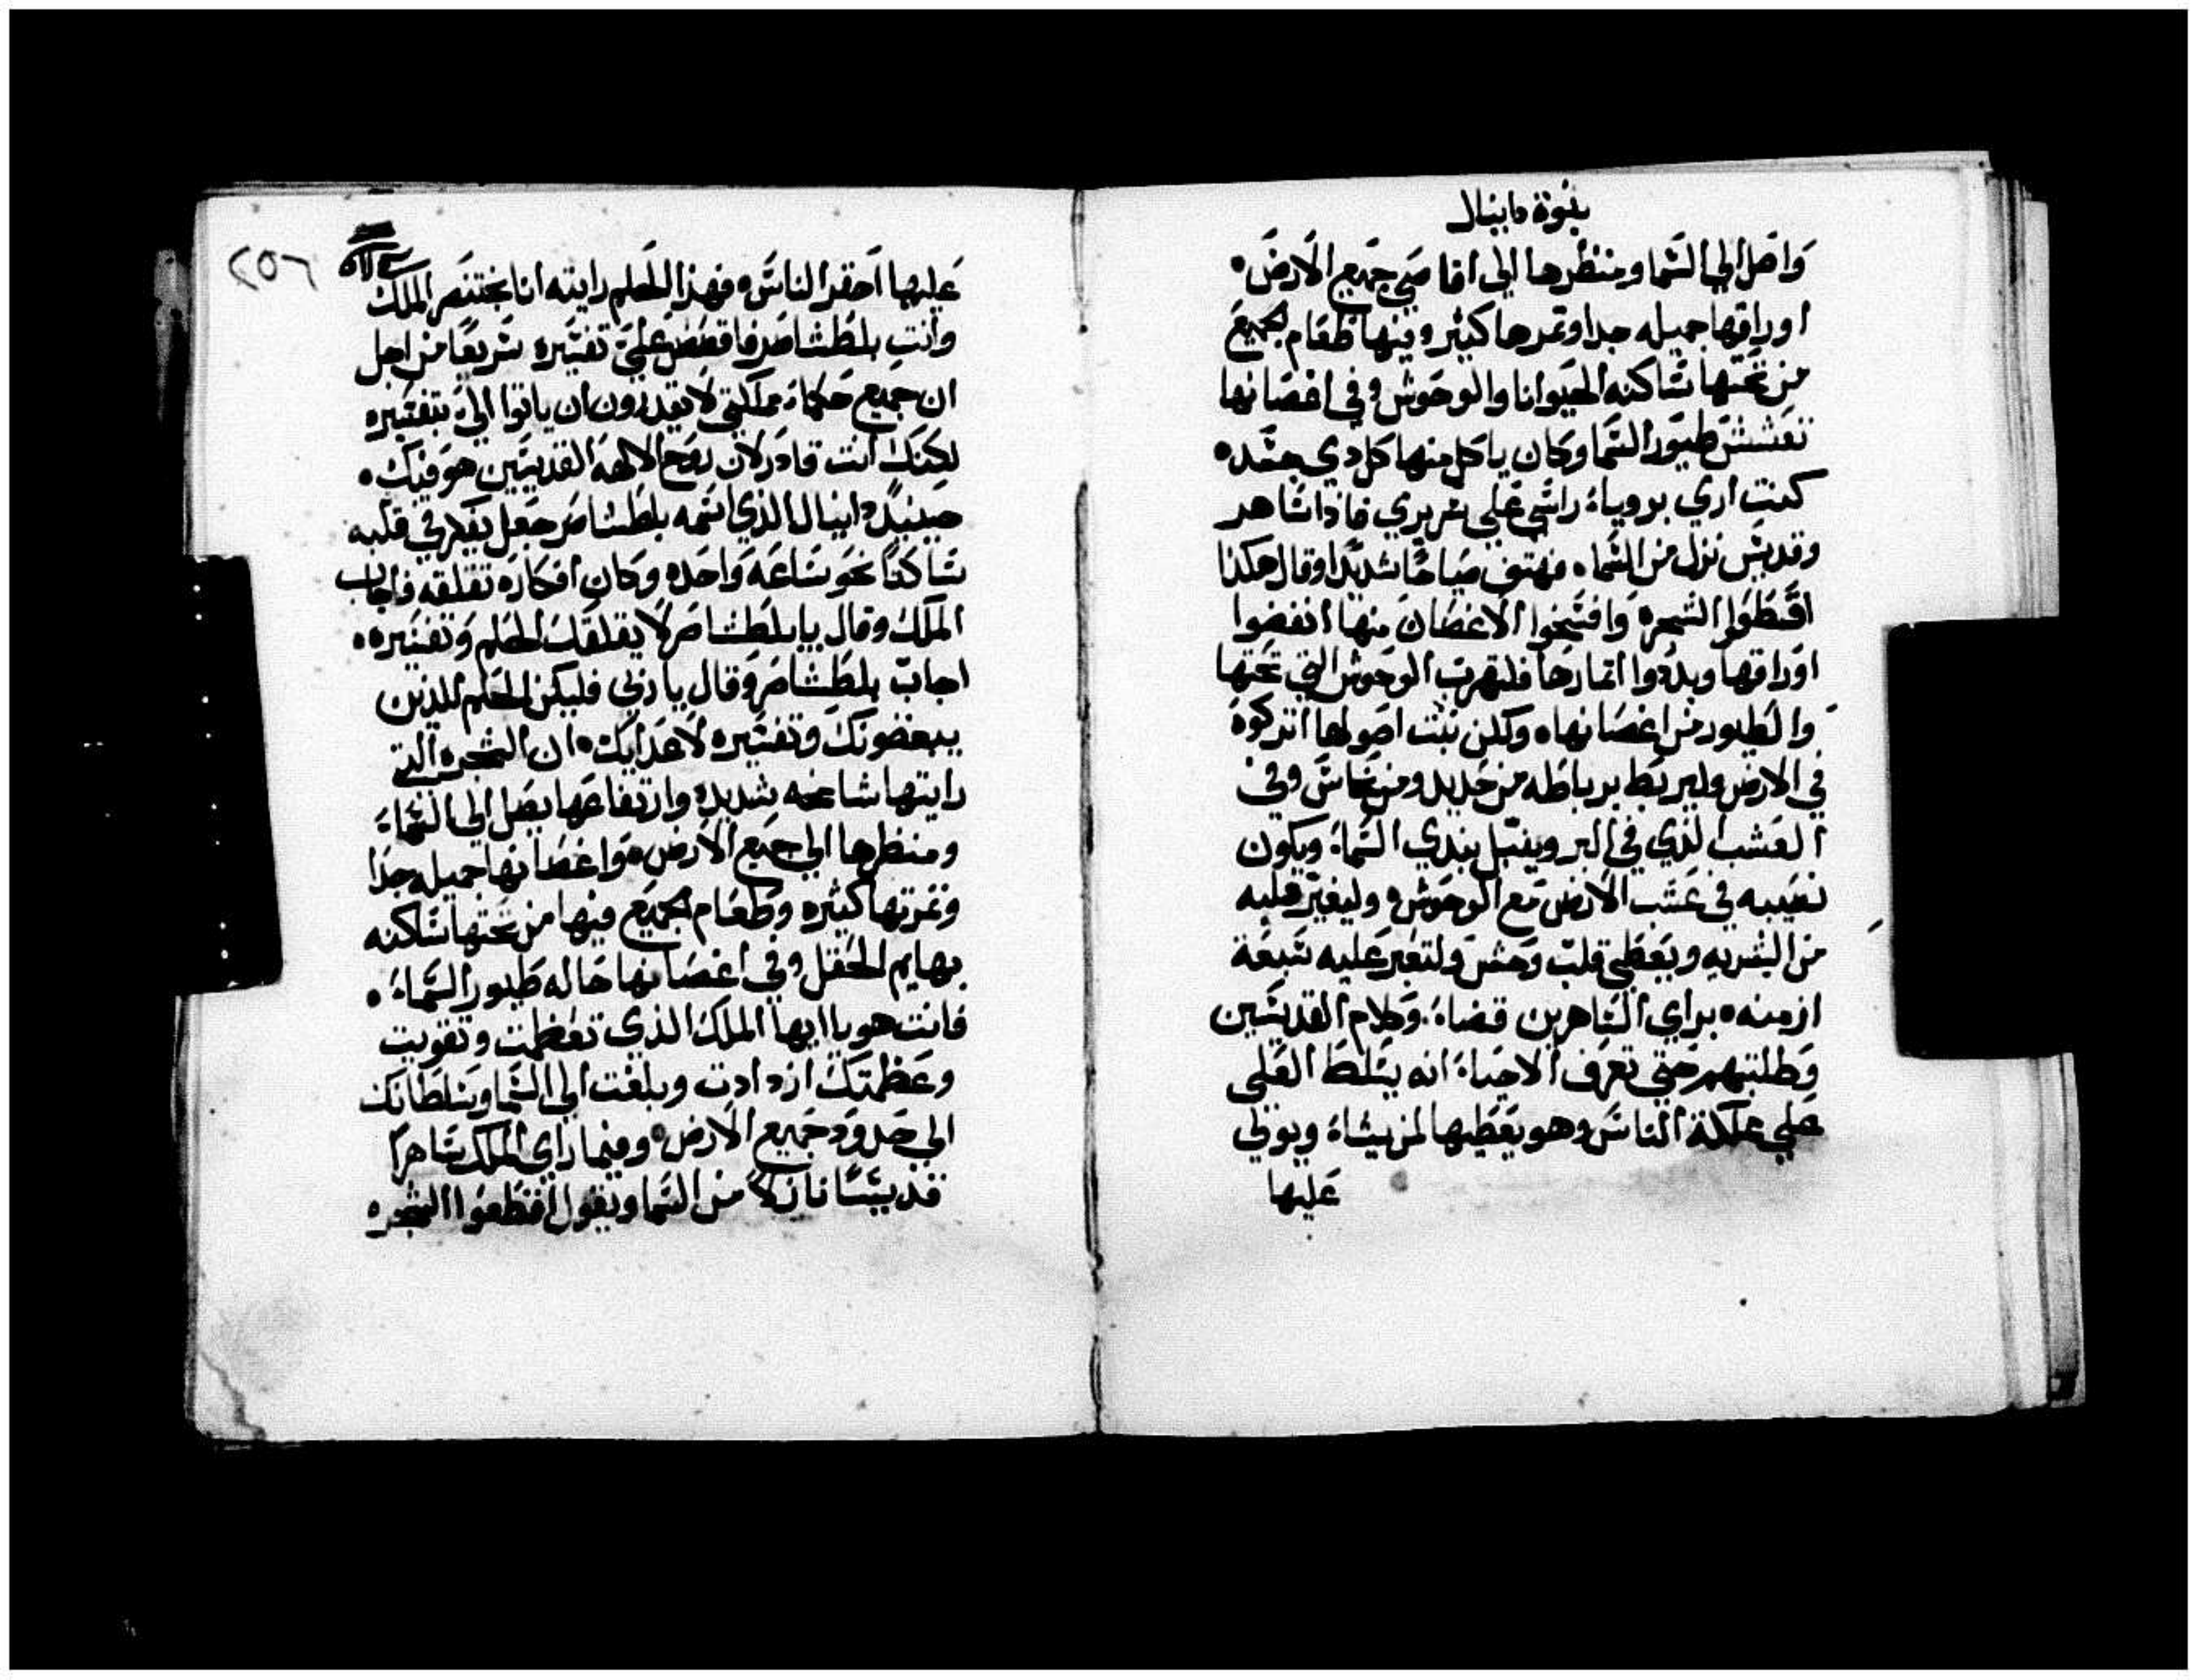 بنوة دانيال
واصل الي السما ومنظرها الي اقاصي جميع الارض
اوراقها جميله جدا وتمرها كثير وفيها طعام لجميع
من تحتها ساكنه الحيوانا والوحوش وفي اغصانها
تعشش طيور السما وكان ياكل منها كل دي جسد
كنت اري بروياء راسي علي سريري فاذا ساهر
وقديس نزل من السماء فهتف صياحا شديدا وقال هكذا
اقطعوا الشجره وافسخوا الاغصان منها انفضوا
اوراقها وبددوا اتمارها فلتهرب الوحوش التي تحتها
والطيور من اغصانها ولكن نبت اصولها اتركوه
في الارض وليربط برباطه من حديد ومن نحاس وفي
العشب الذي في البر ويبتل بندي السماء ويكون
نصيبه في عشب الارض مع الوحوش وليغير قلبه
من البشريه ويعطي قلب وحش ولتعبر عليه سبعة
ازمنه براي الساهرين قضاء وكلام القديسين
وطلبتهم حتي تعرف الاحياء انه يسلط العلي
علي مملكة الناس وهو يعطيها لمن يشاء ويولي
عليها
٢٥٦
عليها احقر الناس فهذا الحلم رايته انا بختنصر الملك
وانت بلطشاصر فاقصص علي تفسيره سريعا من اجل
ان جميع حكماء مملكتي لا يقدرون ان ياتوا الي بتفسيره
لكنك انت قادر لان روح الالهه القديسين هو فيك
حينيد دانيال الذي اسمه بلطشاصر جعل يفكر في قلبه
ساكتا نحو ساعة واحده وكان افكاره تقلقه فاجاب
الملك وقال يا بلطشاصر لا يقلقك الحلم وتفسيره
اجاب بلطشاصر وقال يا ربي فليكن الحلم للذين
يبغضونك وتفسيره لاعدايك ان الشجره التي
رايتها شامخه شديده وارتفاعها يصل الي السماء
ومنظرها الي جميع الارض واغصانها جميله جدا
وتمرتها كثيره وطعام لجميع فيها من تحتها ساكنه
بهايم الحقل وفي اغصانها حاله طيور السماء
فانت هو يا ايها الملك الذي تعظمت وتقويت
وعظمتك ازدادت وبلغت الي السما وسلطانك
الي حدود جميع الارض وفيما راي الملك ساهرا
قديسا نازلا من السما ويقول اقطعوا الشجره